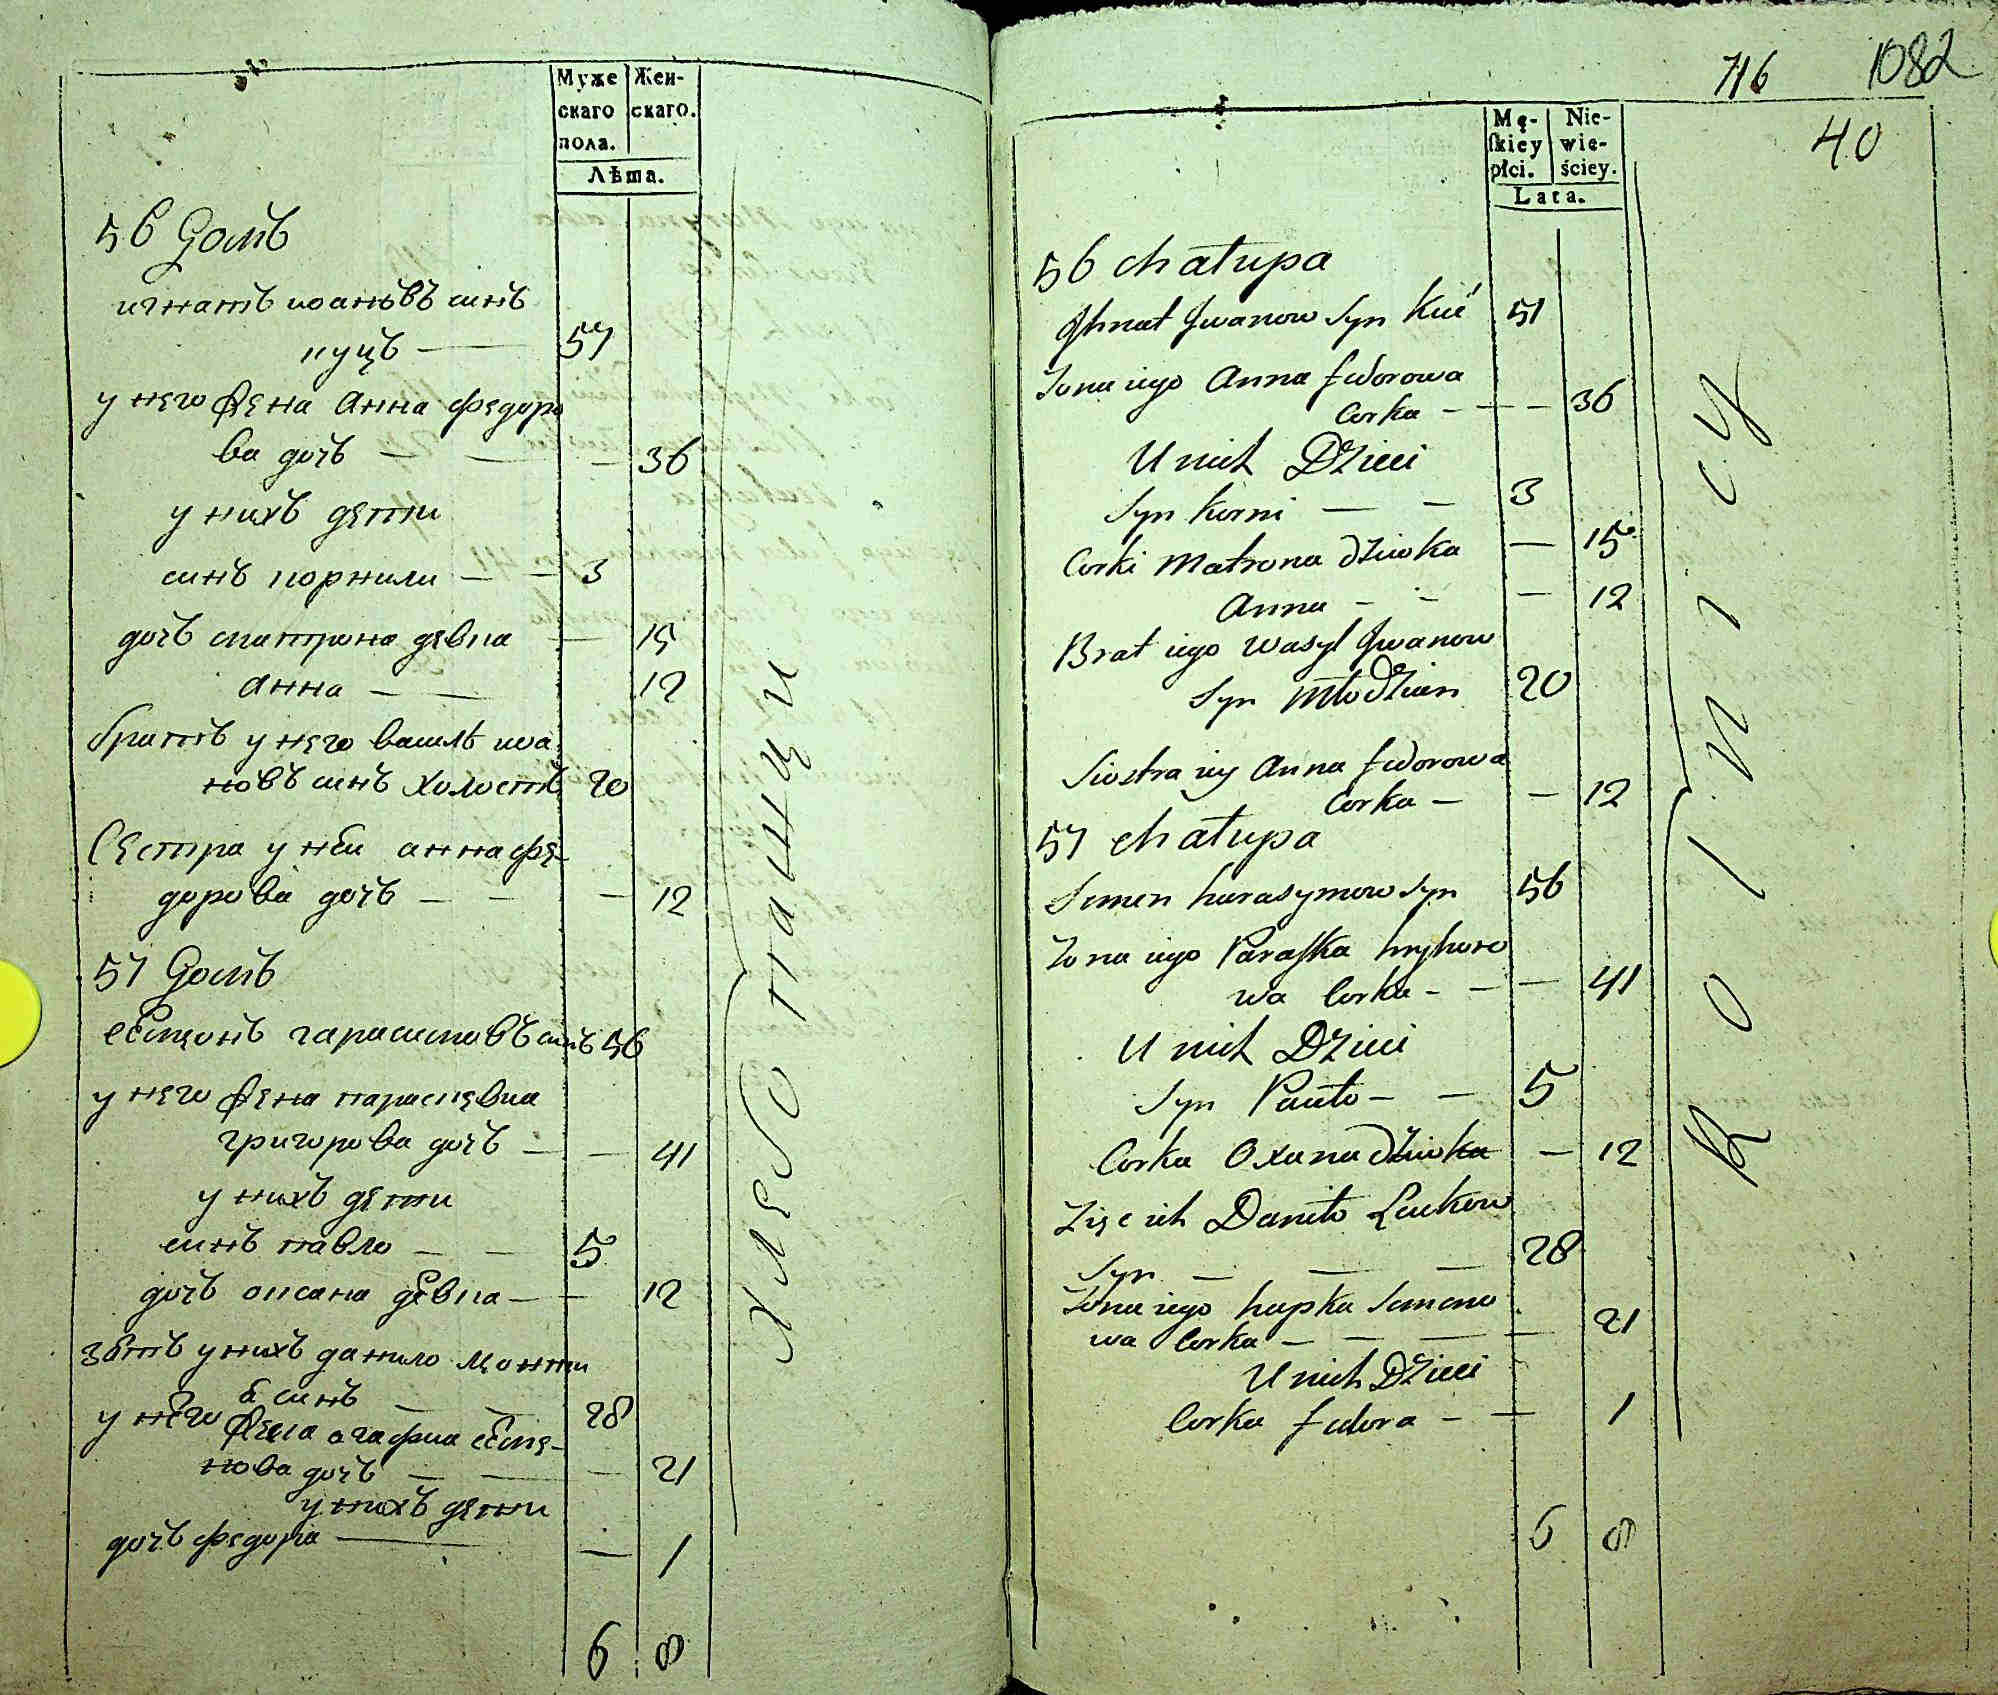 Муже
скаго
пола.
Жен-
скаго.
Лѣта.
56 Домъ
игнатъ иоановъ синъ
куцъ — 57
у него жена Анна федоро
ва дочъ — — — 36
у нихъ дети
синъ корнили — — 3
дочъ матрона девка — 15
Анна — — 12
братъ у него василь иоа
новъ синъ холостъ 20
Сестра у неи анна фе-
дорова дочъ — — — 12
57 Домъ
Семонъ гарасимовъ синъ 56
у него жена параскевиа
григорова дочъ — — 41
у нихъ дети
синъ павло — — 5
дочъ оксана девка — — 12
зять у нихъ данило
въ синъ — — 28
у него жена агафиа семе-
нова дочъ — — — 21
у нихъ дети
дочъ федора — — 1
6 8
Хлебо пашци
716 1082
40
Mę-
skiey
płci.
Nie-
wie-
ściey.
Lata.
56 chałupa
Jhnat Jwanow Syn Kuć 51
Zona iego Anna fedorowa
Corka — — — 36
U nich Dzieci
Syn Korni — — 3
Corki Matrona dziwka — 15
Anna — — — 12
Brat iego Wasyl Jwanow
Syn Młodzian 20
Siostra iey Anna fedorowa
Corka — — 12
57 chałupa
Semen harasymow Syn 56
Zona iego Paraska hryhoro
wa Corka — — — 41
U nich Dzieci
Syn Pawło — — 5
Corka Oxana dziwka — 12
Zięć ich Daniło Luckow
Syn — — — 28
Zona iego hapka Semeno
wa Corka — — — — 21
U nich Dzieci
Corka fedora — — 1
6 8
Rolnicy